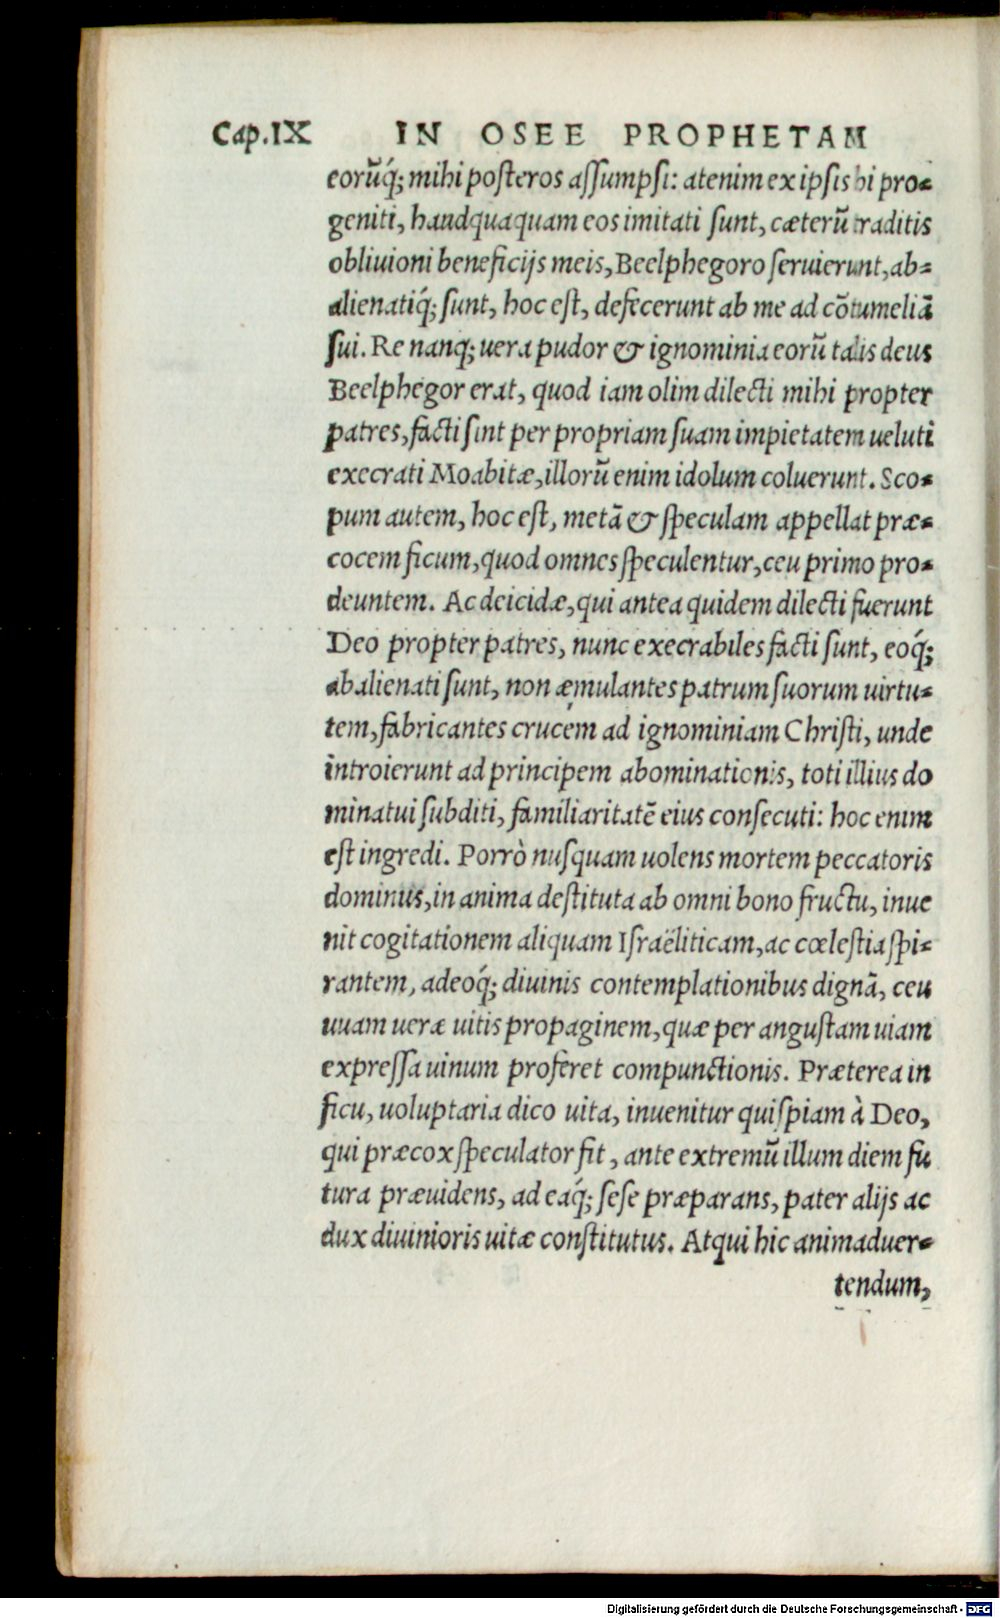 Cap.IX IN OSEE PROPHETAM
eorũq́; mihi posteros assumpsi: atenim ex ipsis hi pro-
geniti, haudquaquam eos imitati sunt, cæterũ traditis
obliuioni beneficijs meis, Beelphegoro seruierunt, ab-
alienatiq́; sunt, hoc est, defecerunt ab me ad cõtumeliã
sui. Re nanq; uera pudor & ignominia eorũ talis deus
Beelphegor erat, quod iam olim dilecti mihi propter
patres, facti sint per propriam suam impietatem ueluti
execrati Moabitæ, illorũ enim idolum coluerunt. Sco-
pum autem, hoc est, metã & speculam appellat præ-
cocem ficum, quod omnes speculentur, ceu primo pro-
deuntem. Ac deicidæ, qui antea quidem dilecti fuerunt
Deo propter patres, nunc execrabiles facti sunt, eoq́;
abalienati sunt, non æmulantes patrum suorum uirtu-
tem, fabricantes crucem ad ignominiam Christi, unde
introierunt ad principem abominationis, toti illius do
minatui subditi, familiaritatẽ eius consecuti: hoc enim
est ingredi. Porrò nusquam uolens mortem peccatoris
dominus, in anima destituta ab omni bono fructu, inue
nit cogitationem aliquam Israëliticam, ac cœlestia spi-
rantem, adeoq́; diuinis contemplationibus dignã, ceu
uuam ueræ uitis propaginem, quæ per angustam uiam
expressa uinum proferet compunctionis. Præterea in
ficu, uoluptaria dico uita, inuenitur quispiam à Deo,
qui præcox speculator fit, ante extremũ illum diem fu
tura præuidens, ad eaq́; sese præparans, pater alijs ac
dux diuinioris uitæ constitutus. Atqui hic animaduer-
tendum,
Digitalisierung gefördert durch die Deutsche Forschungsgemeinschaft - DFG